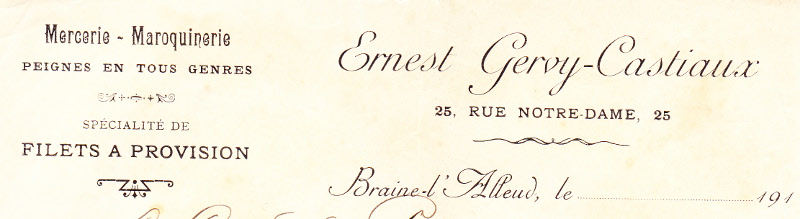 Mercerie - Maroquinerie
PEIGNES EN TOUS GENRES
SPÉCIALITÉ DE
FILETS A PROVISION
Ernest Gervy-Castiaux
25, RUE NOTRE-DAME, 25
Braine-l'Alleud, le 191